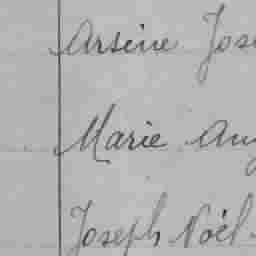 Arsène Jos
Marie Aug
Joseph Noël